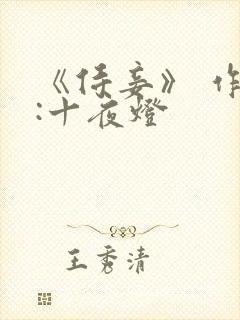 《侍妾》 作
:十夜燈
王秀清